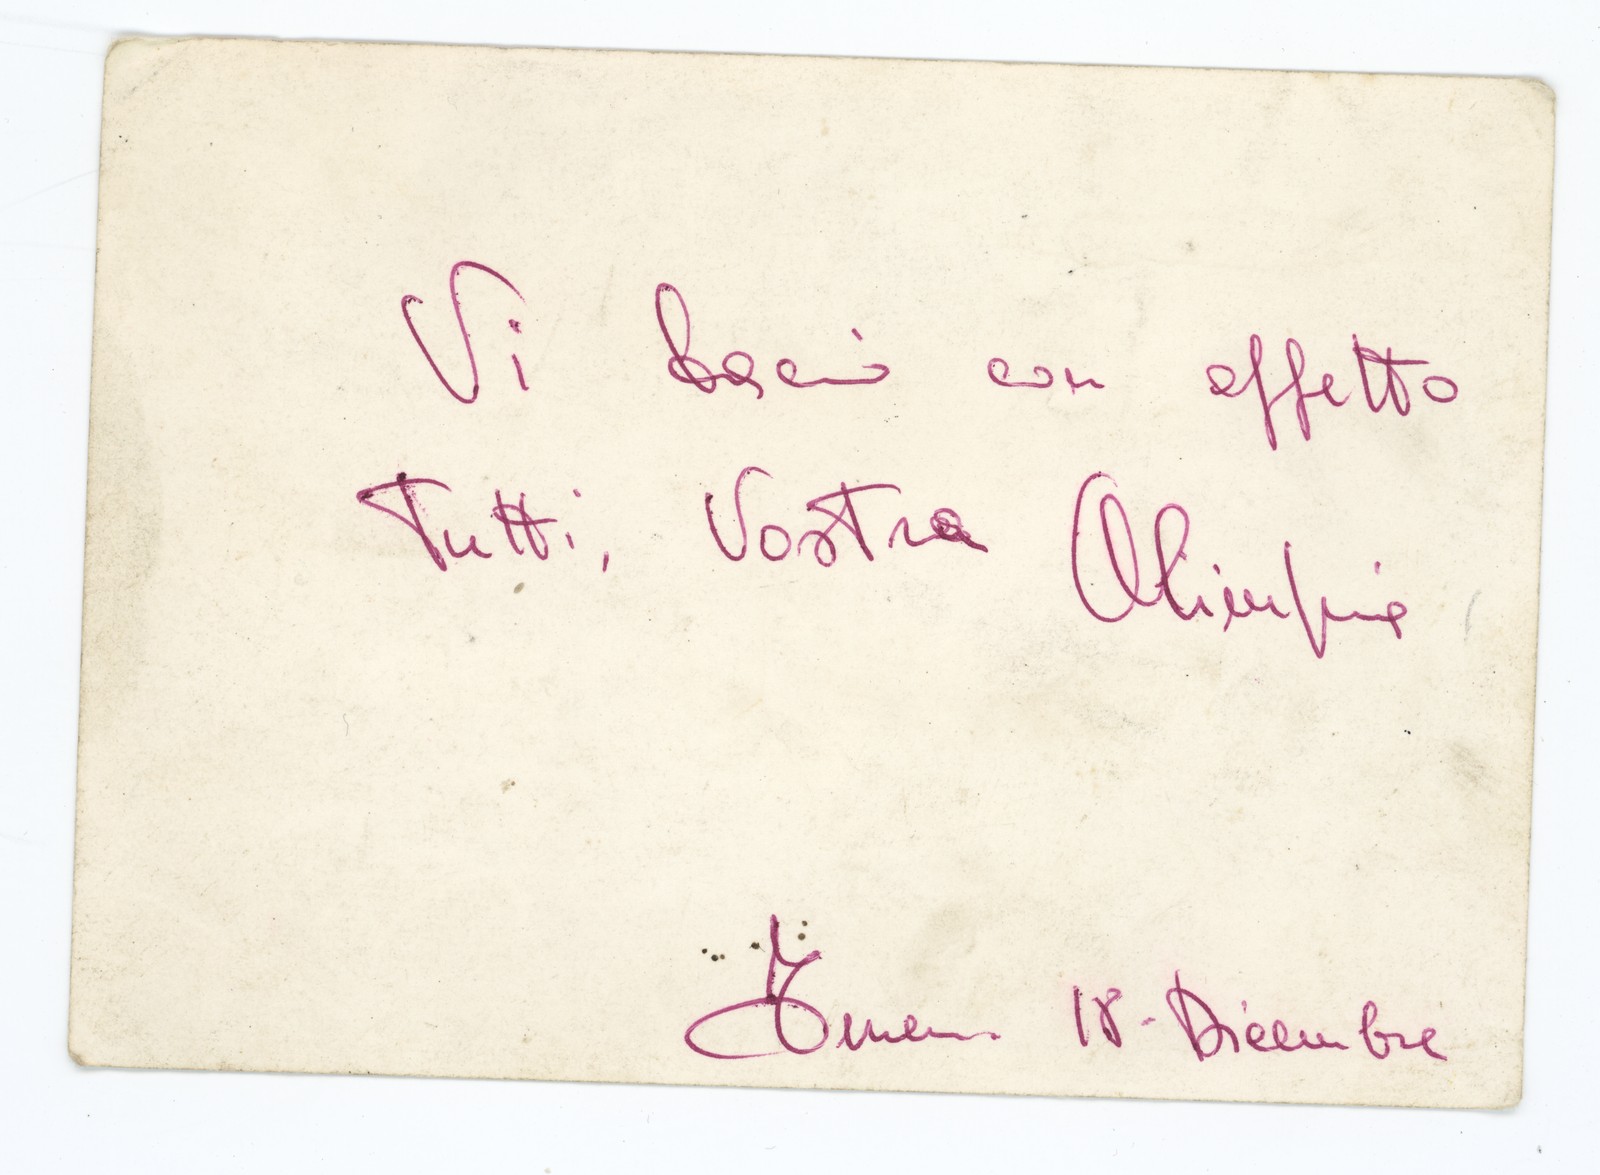 Vi bacio con affetto
Tutti, Vostra Olimpia
18 - Dicembre